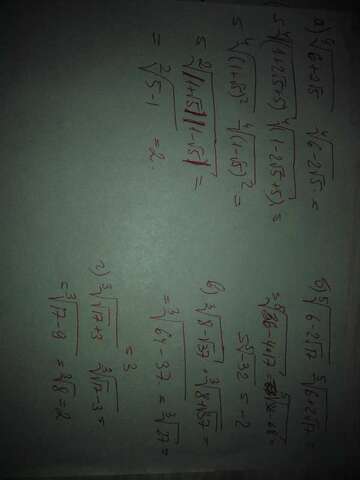 а) ⁴√6+2√5 ⁴√6-2√5 =
= ⁴√(1+2√5+5) ⁴√(1-2√5+5) =
= ⁴√(1+√5)² ⁴√(1-√5)² =
= ²√|1+√5||1-√5| =
= ²√5-1 = 2.
б) ⁵√6-2√17 ⁵√6+2√17 =
= ⁵√36-4·17 =
= ⁵√-32 = -2
в) ³√8-√37 · ³√8+√37 =
= ³√64-37 = ³√27 =
= 3
г) ³√√17+3 ³√√17-3 =
= ³√17-9 = ³√8 = 2